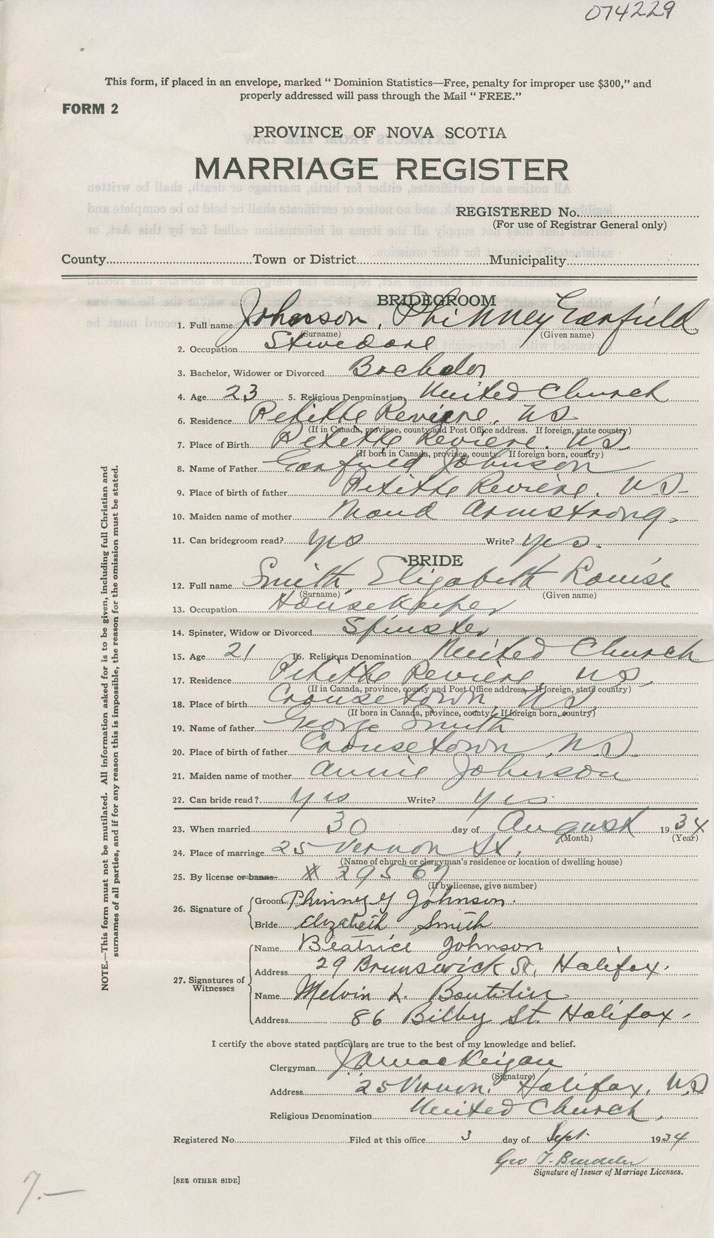 074229
This form, if placed in an envelope, marked " Dominion Statistics—Free, penalty for improper use $300," and
properly addressed will pass through the Mail " FREE."
FORM 2
PROVINCE OF NOVA SCOTIA
MARRIAGE REGISTER
REGISTERED No.
(For use of Registrar General only)
County Town or District Municipality
BRIDEGROOM
1. Full name Johnson, Phinney Garfield
(Surname) (Given name)
2. Occupation Stevedore
3. Bachelor, Widower or Divorced Bachelor
4. Age 23 5. Religious Denomination United Church
6. Residence Petitte Reviere, NS
(If in Canada, province, county and Post Office address. If foreign, state country)
7. Place of Birth Petitte Reviere, NS
(If born in Canada, province, county. If foreign born, country)
8. Name of Father Garfield Johnson
9. Place of birth of father Petitte Reviere, NS
10. Maiden name of mother Maud Armstrong.
11. Can bridegroom read? yes Write? yes.
BRIDE
12. Full name Smith, Elizabeth Louise
(Surname) (Given name)
13. Occupation Housekeeper
14. Spinster, Widow or Divorced Spinster
15. Age 21 16. Religious Denomination United Church
17. Residence Petitte Reviere, NS,
(If in Canada, province, county and Post Office address. If foreign, state country)
18. Place of birth Crousetown, NS,
(If born in Canada, province, county. If foreign born, country)
19. Name of father George Smith
20. Place of birth of father Crousetown NS
21. Maiden name of mother Annie Johnson
22. Can bride read? yes Write? yes.
23. When married 30 day of August 1934
(Month) (Year)
24. Place of marriage 25 Vernon St,
(Name of church or clergyman's residence or location of dwelling house)
25. By license or banns # 29567
(If by license, give number)
26. Signature of
Groom Phinney G Johnson.
Bride Elizabeth Smith
27. Signatures of Witnesses
Name Beatrice Johnson
Address 29 Brunswick St, Halifax.
Name Melvin L. Boutilier
Address 86 Bilby St. Halifax.
I certify the above stated particulars are true to the best of my knowledge and belief.
Clergyman
(Signature)
Address 25 Vernon, Halifax, NS
Religious Denomination United Church,
Registered No. Filed at this office 3 day of Sept. 1934
Geo T.
Signature of Issuer of Marriage Licenses.
[SEE OTHER SIDE]
7.—
NOTE.—This form must not be mutilated. All information asked for is to be given, including full Christian and
surnames of all parties, and if for any reason this is impossible, the reason for the omission must be stated.